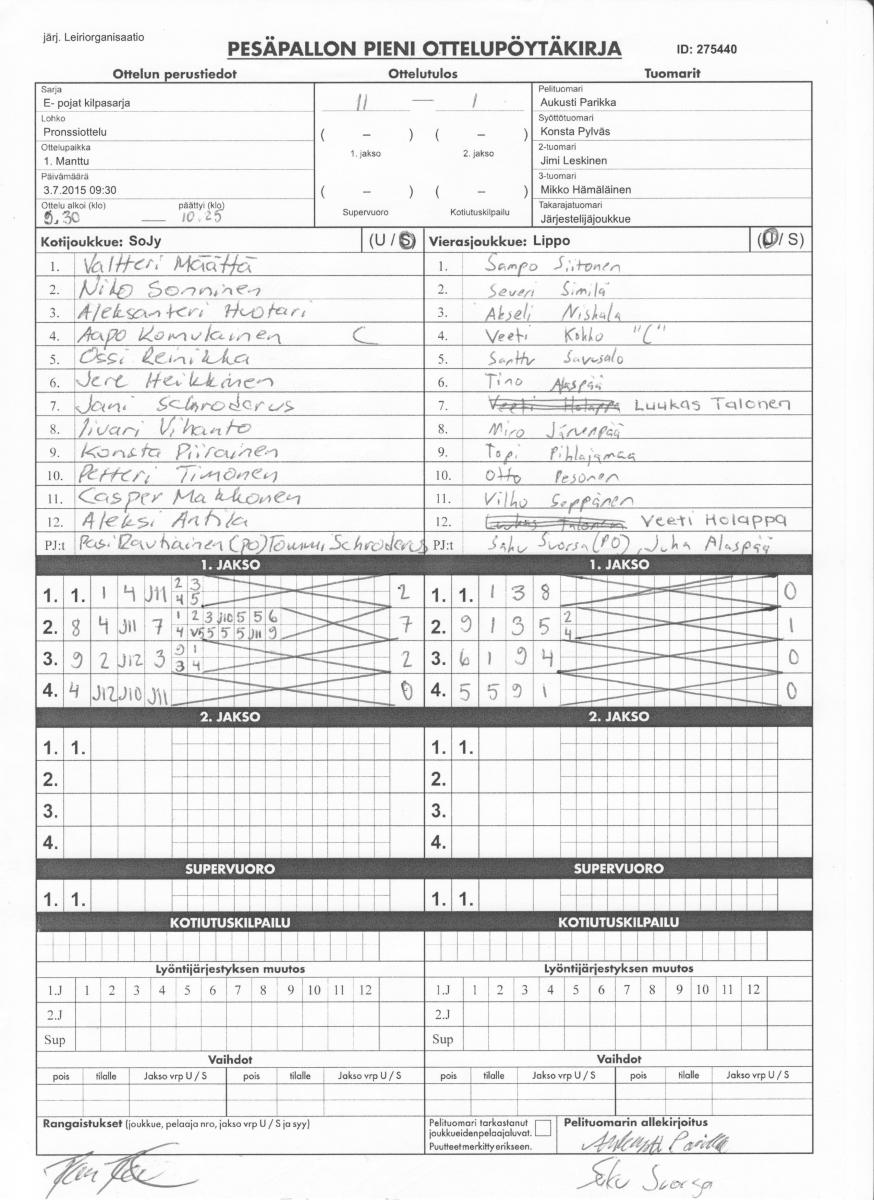 järj. Leiriorganisaatio
PESÄPALLON PIENI OTTELUPÖYTÄKIRJA
ID: 275440
Ottelun perustiedot Ottelutulos Tuomarit
Sarja
E- pojat kilpasarja
Lohko
Pronssiottelu
Ottelupaikka
1. Manttu
Päivämäärä
3.7.2015 09:30
Ottelu alkoi (klo) päättyi (klo)
9.30 — 10.25
11 — 1
( – ) ( – )
1. jakso 2. jakso
( – ) ( – )
Supervuoro Kotiutuskilpailu
Pelituomari
Aukusti Parikka
Syöttötuomari
Konsta Pylväs
2-tuomari
Jimi Leskinen
3-tuomari
Mikko Hämäläinen
Takarajatuomari
Järjestelijäjoukkue
Kotijoukkue: SoJy (U / S)
1. Valtteri Määttä
2. Niko Sonninen
3. Aleksanteri Huotari
4. Aapo Komulainen C
5. Ossi Reinikka
6. Jere Heikkinen
7. Jani Schroderus
8. Iivari Vihanto
9. Konsta Piirainen
10. Petteri Timonen
11. Casper Makkonen
12. Aleksi Antila
PJ:t Pasi Rautiainen (PO) Tommi Schroderus
Vierasjoukkue: Lippo (U / S)
1. Sampo Siitonen
2. Severi Similä
3. Akseli Niskala
4. Veeti Kokko "C"
5. Santtu Savusalo
6. Tino Alaspää
7. Veeti Holappa Luukas Talonen
8. Miro Järvenpää
9. Topi Pihlajamaa
10. Otto Pesonen
11. Vilho Seppänen
12. Luukas Talonen Veeti Holappa
PJ:t Saku Suorsa (PO), Juha Alaspää
1. JAKSO
1. 1. 1 4 J11 2 3 2
4 5
2. 8 4 J11 7 1 2 3 J10 5 5 6 7
4 V5 5 5 5 J11 9
3. 9 2 J12 3 9 1 2
3 4
4. 4 J12 J10 J11 0
1. JAKSO
1. 1. 1 3 8 0
2. 9 1 3 5 2 1
4
3. 6 1 9 4 0
4. 5 5 9 1 0
2. JAKSO
1. 1.
2.
3.
4.
2. JAKSO
1. 1.
2.
3.
4.
SUPERVUORO
1. 1.
SUPERVUORO
1. 1.
KOTIUTUSKILPAILU
KOTIUTUSKILPAILU
Lyöntijärjestyksen muutos
1.J 1 2 3 4 5 6 7 8 9 10 11 12
2.J
Sup
Lyöntijärjestyksen muutos
1.J 1 2 3 4 5 6 7 8 9 10 11 12
2.J
Sup
Vaihdot
pois tilalle Jakso vrp U / S pois tilalle Jakso vrp U / S
Vaihdot
pois tilalle Jakso vrp U / S pois tilalle Jakso vrp U / S
Rangaistukset (joukkue, pelaaja nro, jakso vrp U / S ja syy)
Pelituomari tarkastanut
joukkueiden pelaajaluvat.
Puutteet merkitty erikseen.
Pelituomarin allekirjoitus
Aukusti Parikka
Saku Suorsa